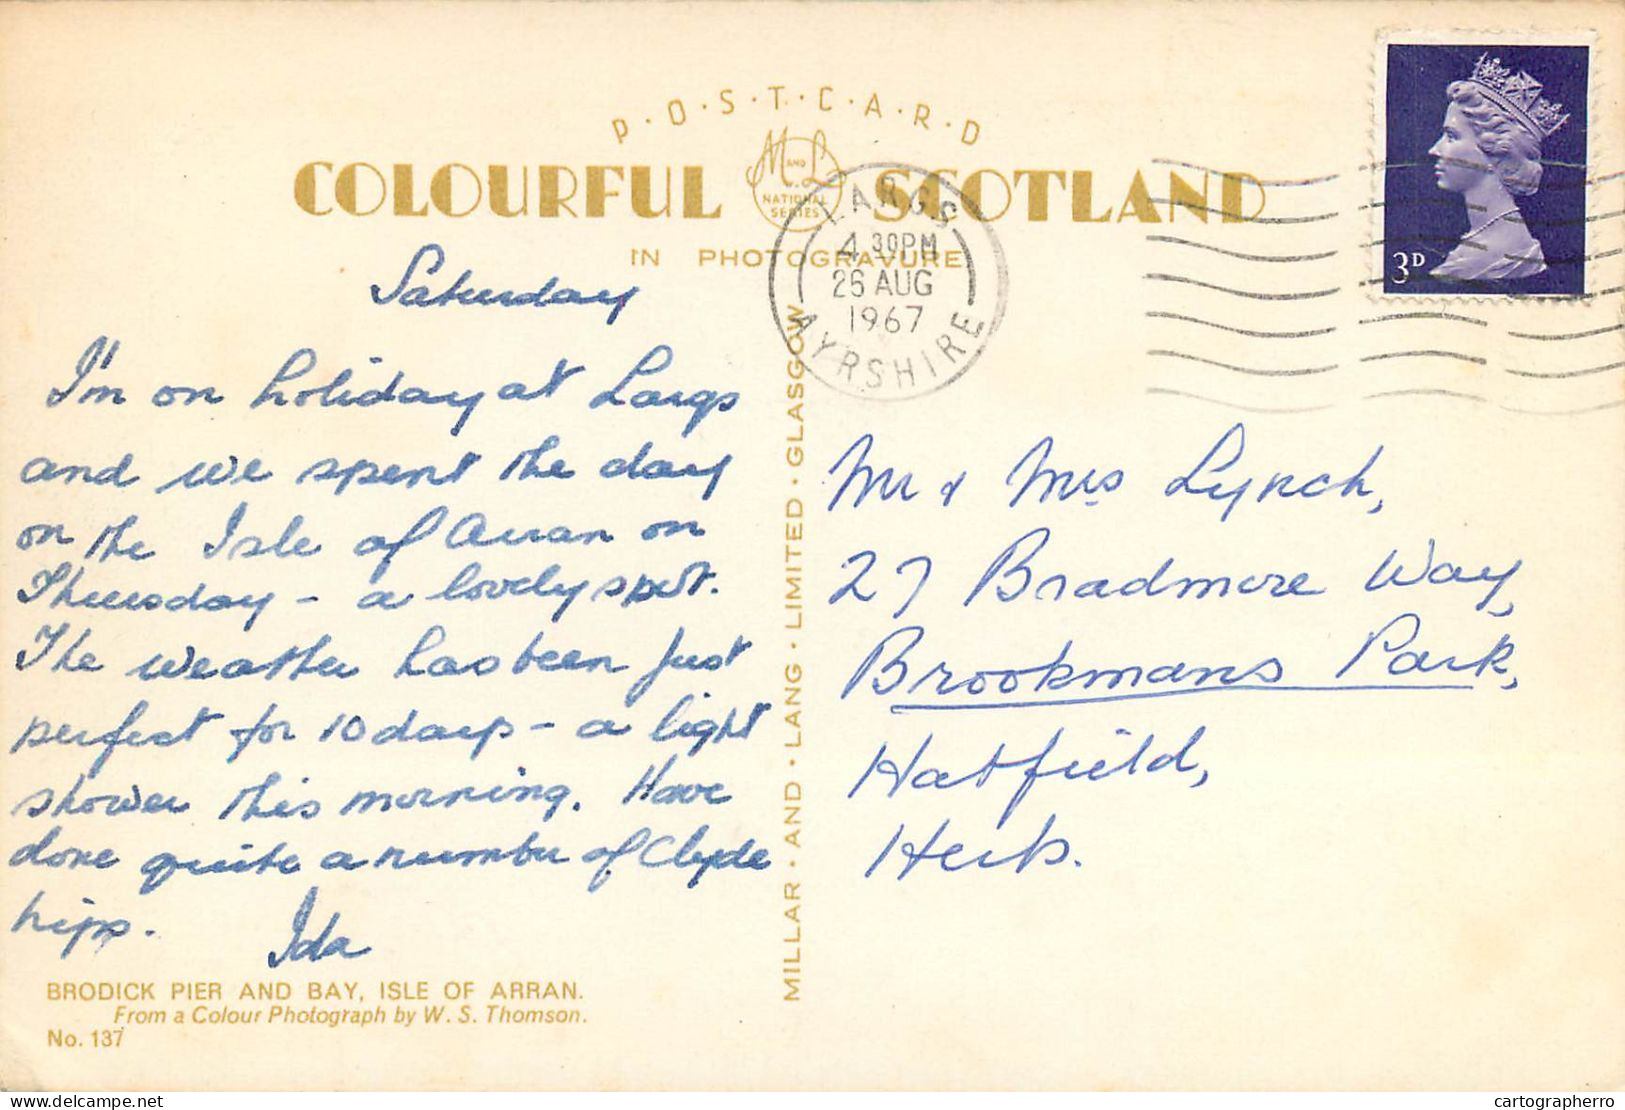 P·O·S·T·C·A·R·D
COLOURFUL SCOTLAND
M AND L
NATIONAL
SERIES
IN PHOTOGRAVURE
LARGS
4.30PM
26 AUG
1967
AYRSHIRE
3D
Saturday
I'm on holiday at Largs
and we spent the day
on the Isle of Arran on
Thursday - a lovely spot.
The weather has been just
perfect for 10 days - a light
shower this morning. Have
done quite a number of Clyde
trips.
Ida
BRODICK PIER AND BAY, ISLE OF ARRAN.
From a Colour Photograph by W. S. Thomson.
No. 137
MILLAR · AND · LANG · LIMITED · GLASGOW
Mr & Mrs Lynch,
27 Bradmore Way,
Brookmans Park,
Hatfield,
Herts.
delcampe.net
cartographerro